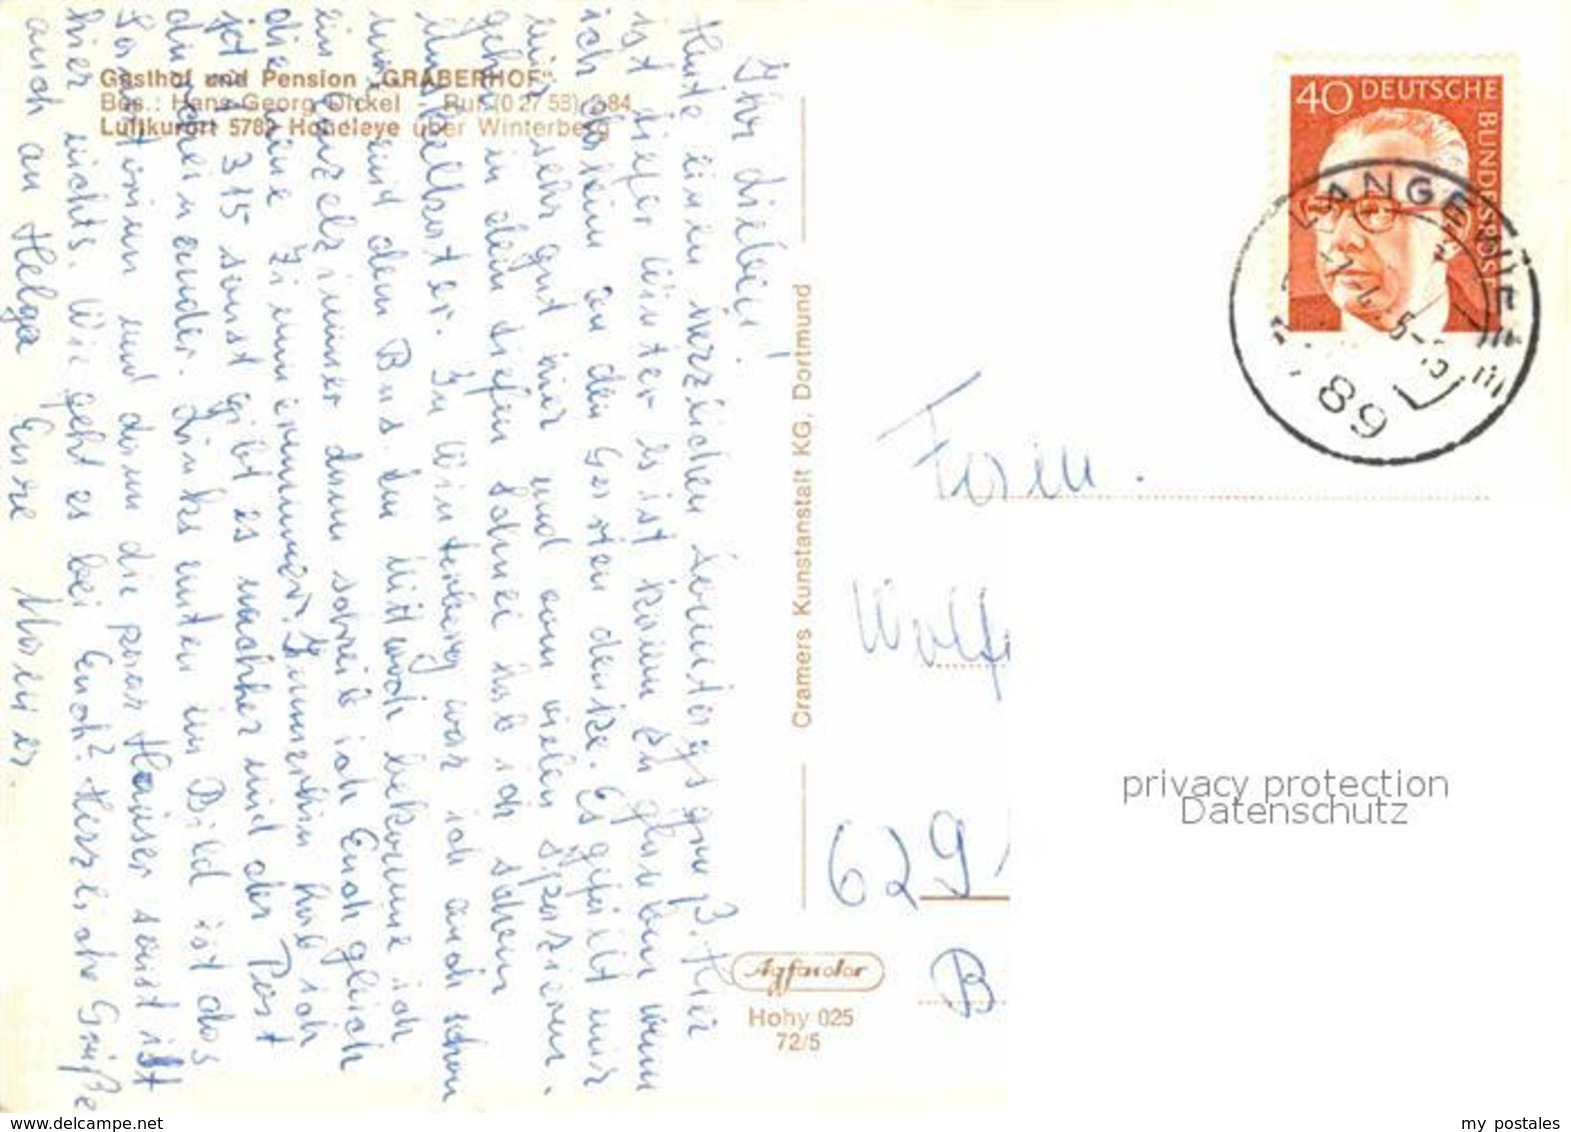 Gasthof und Pension „GRABERHOF"
Bes.: Hans-Georg Dickel - Ruf (0 27 58) 2 84
Luftkurort 5789 Hoheleye über Winterberg
Ihr Lieben!
Heute einen herzlichen Sonntagsgruß. Hier
ist tiefer Winter es ist kaum zu glauben wenn
ich daheim an den Garten denke. Es gefällt mir
hier sehr gut hier und vom vielen spazieren
gehen in dem tiefen Schnee hab ich schon
Muskelkater. In Winterberg war ich auch schon
mal mit dem Bus. Am Mittwoch bekomme ich
ein Einzelzimmer dann schreib ich Euch gleich
die neue Zimmernummer. Immerhin hab ich
jetzt 315 sonst gibt es nachher mit der Post
durcheinander. Links unten im Bild ist das
Sanatorium und dann die paar Häuser sonst ist
hier nichts. Wie geht es bei Euch? Herzliche Grüße
auch an Helga Eure
Cramers Kunstanstalt KG, Dortmund
Agfacolor
Hohy 025
72/5
40 DEUTSCHE BUNDESPOST
Fam.
Wolf
629
B
privacy protection
Datenschutz
www.delcampe.net
my postales